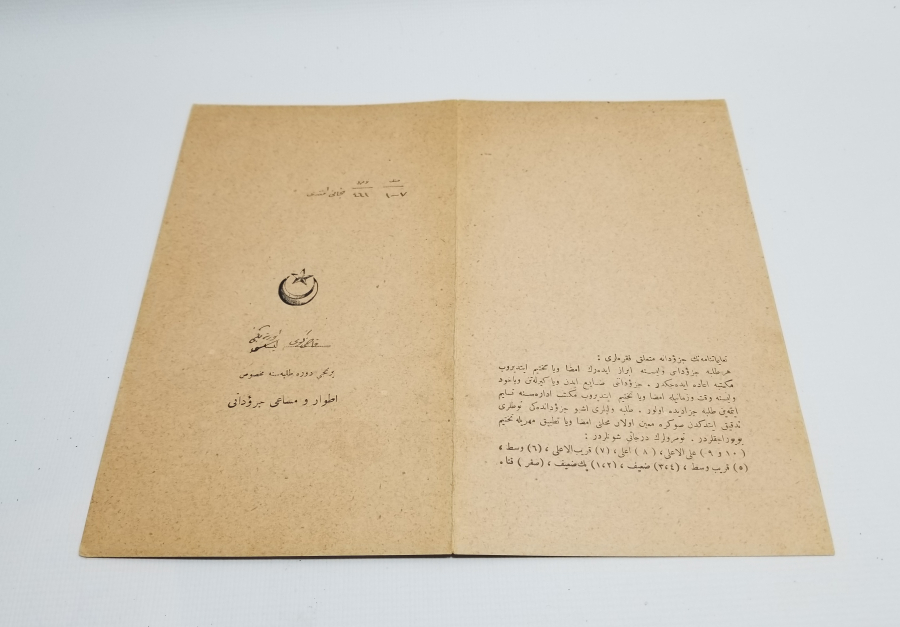 صنف نومرو
٧—١ ٤٤١
قاضی‌کوی
برنجی دوره طلبه‌سنه مخصوص
اطوار و مساعی جزؤدانی
تعلیماتنامه‌نك جزؤدانه متعلق فقره‌لری :
هر طلبه جزؤدانی ولیسنه ابراز ایده‌رك امضا ویا تختیم ایتدیروب
مکتبه اعاده ایده‌جکدر . جزؤدانی ضایع ایدن ویا کیرله‌تن ویاخود
ولیسنه وقت وزمانیله امضا ویا تختیم ایتدیروب مکتب اداره‌سنه تسلیم
ایتمه‌ین طلبه جزادیده اولور . طلبه ولیلری اشبو جزؤدانده‌کی نوطلری
تدقیق ایتدکدن صوکره معین اولان محلنی امضا ویا تطبیق مهریله تختیم
بویوراجقلردر . نومرولرك درجاتی شونلردر :
( ١٠ و ٩ ) علی الاعلی ، ( ٨ ) اعلی ، (٧) قریب‌الاعلی ، (٦) وسط ،
(٥) قریب وسط ، (٣،٤) ضعیف ، (١،٢) پك ضعیف ، (صفر) فنا .